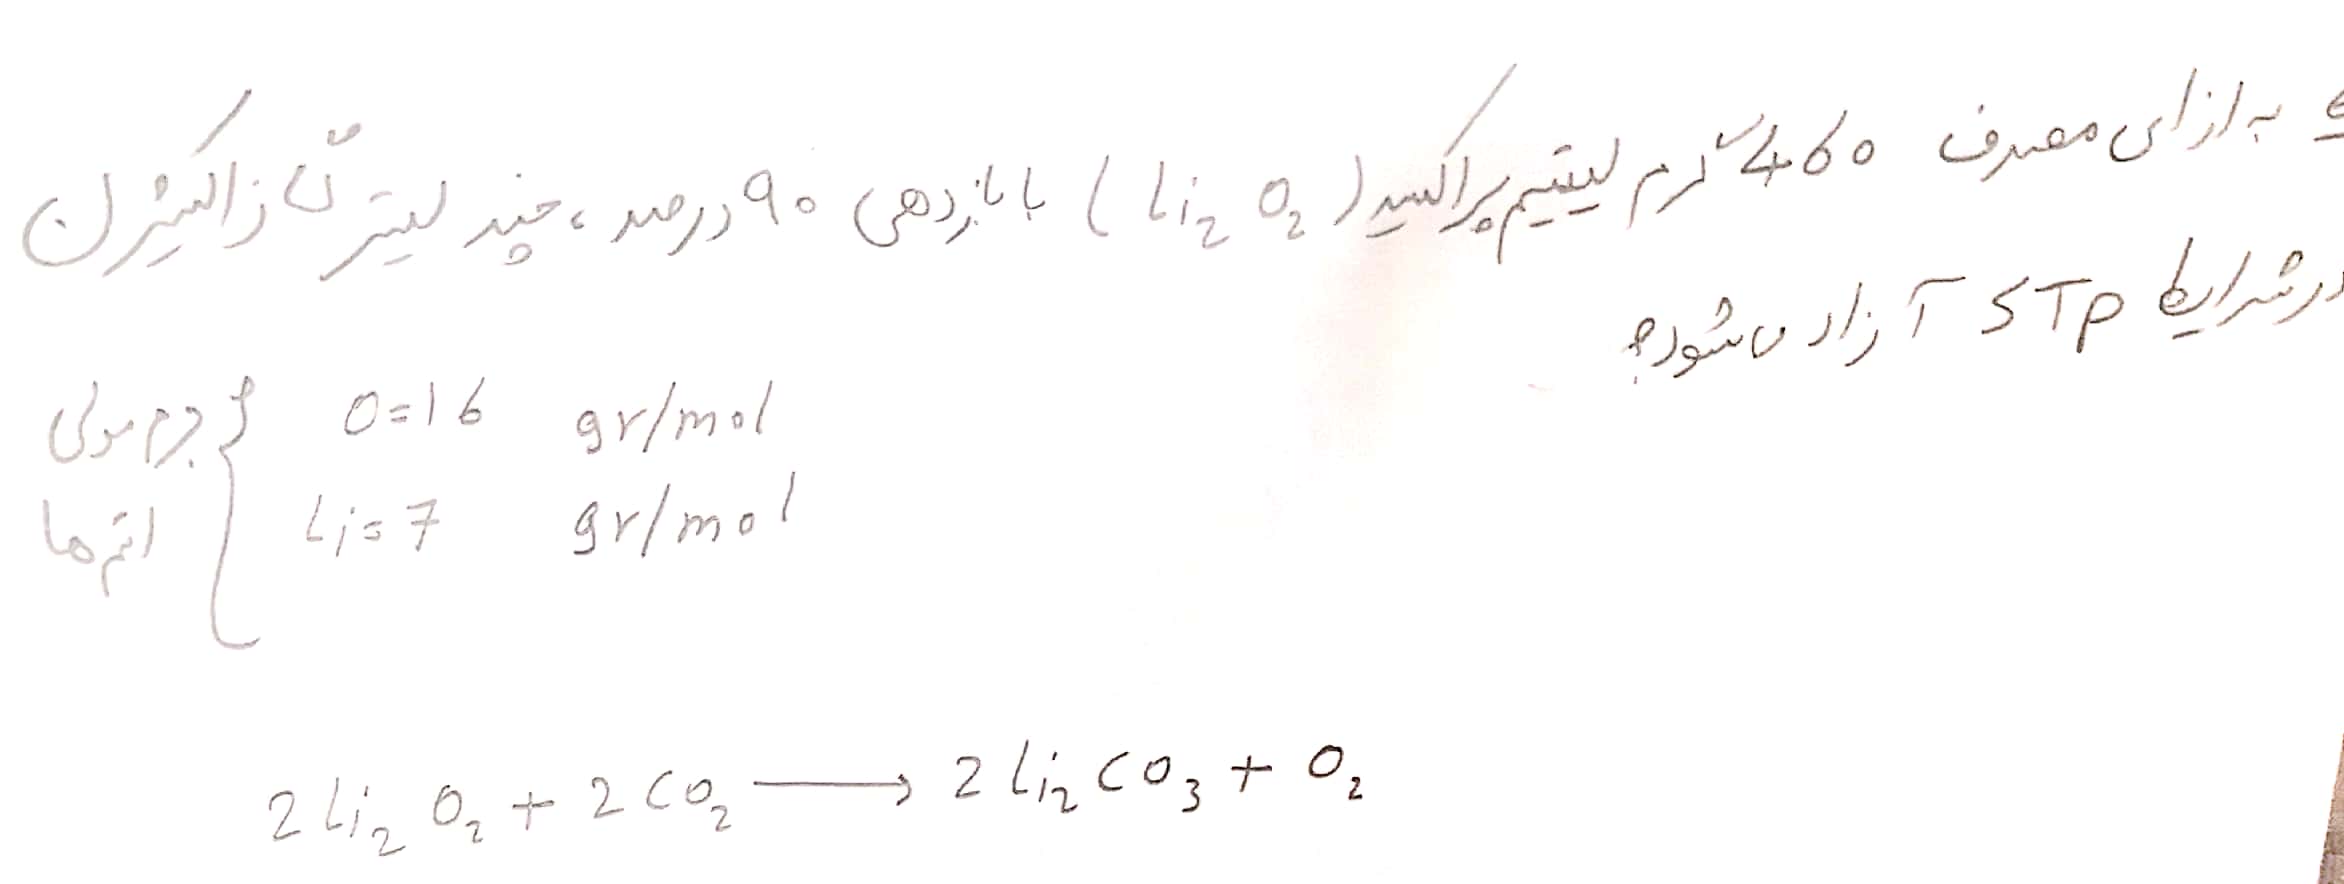 به ازای مصرف 460 گرم لیتیم پراکسید (Li₂O₂) با بازدهی ۹۰ درصد، چند لیتر گاز اکسیژن
در شرایط STP آزاد می شود؟
جرم مولی اتم ها { O=16 gr/mol
Li=7 gr/mol
2Li₂O₂ + 2CO₂ ⟶ 2Li₂CO₃ + O₂